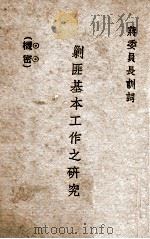 蔣委員長訓詞
剿匪基本工作之研究
(機密)
www.duxiu.com